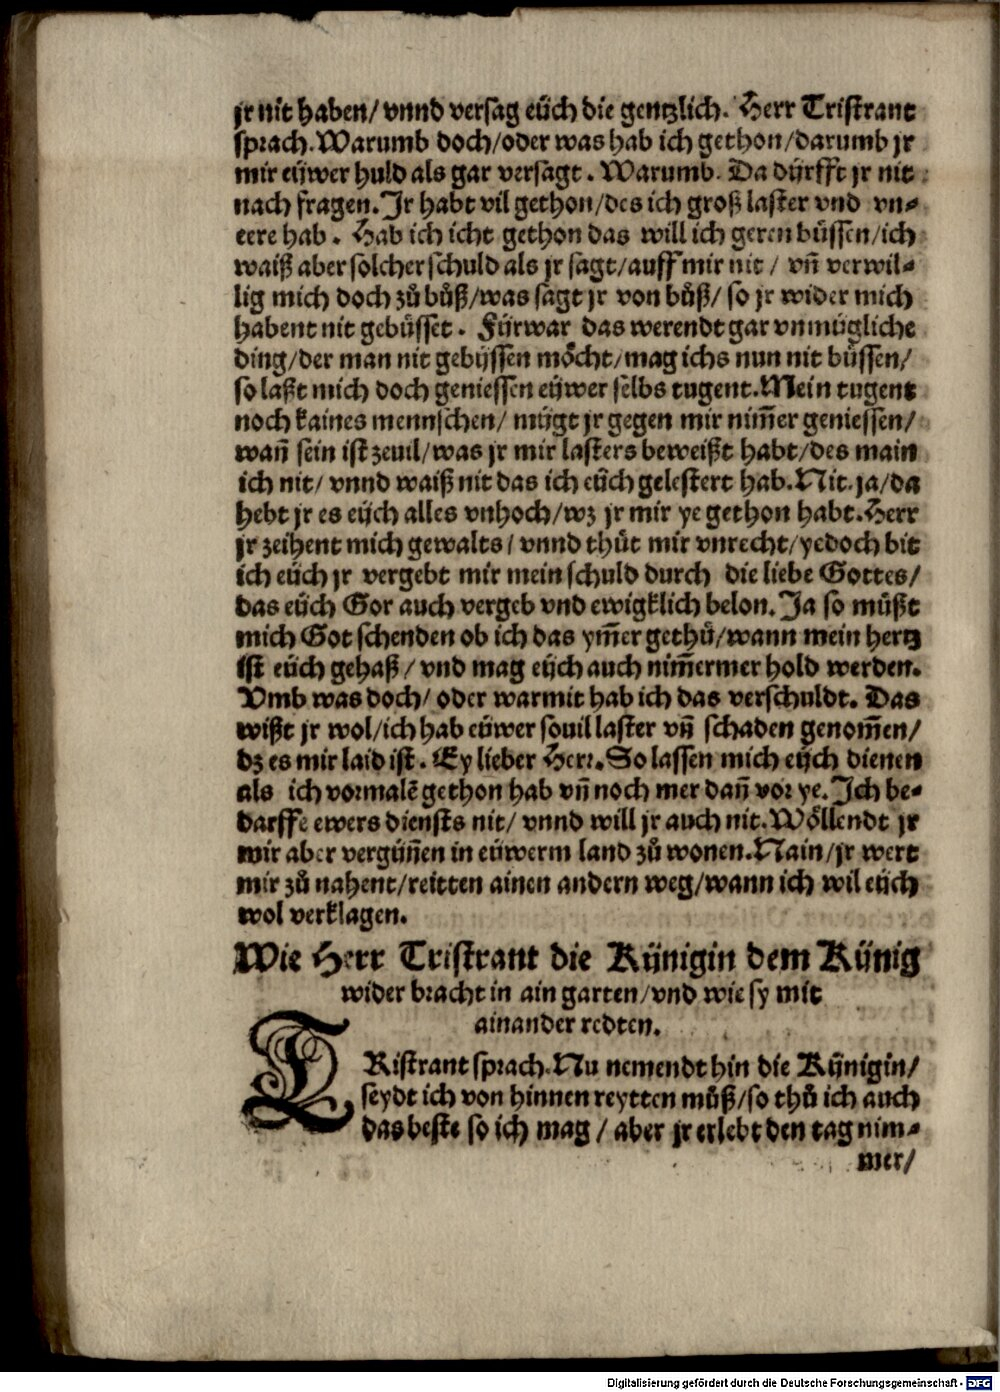 jr nit haben/ vnnd versag eüch die gentzlich. Herr Tristrant
sprach. Warumb doch/oder was hab ich gethon/darumb jr
mir eüwer huld als gar versagt. Warumb. Da dürfft jr nit
nach fragen. Ir habt vil gethon/des ich groß laster vnd vn-
eere hab. Hab ich icht gethon das will ich geren büssen/ich
waiß aber solcher schuld als jr sagt/auff mir nit/ vn̄ verwil-
lig mich doch zů bůß/was sagt jr von bůß/ so jr wider mich
habent nit gebüsset. Fürwar das werendt gar vnmügliche
ding/der man nit gebyssen möcht/mag ichs nun nit büssen/
so laßt mich doch geniessen eüwer selbs tugent. Mein tugent
noch kaines mennschen/ mügt jr gegen mir nim̄er geniessen/
wan̄ sein ist zeuil/was jr mir lasters beweißt habt/des main
ich nit/ vnnd waiß nit das ich eüch gelestert hab. Nit. ja/da
hebt jr es eüch alles vnhoch/wz jr mir ye gethon habt. Herr
jr zeihent mich gewalts/ vnnd thüt mir vnrecht/yedoch bit
ich eüch jr vergebt mir mein schuld durch die liebe Gottes/
das eüch Gor auch vergeb vnd ewigklich belon. Ja so müßt
mich Got schenden ob ich das ym̄er gethů/wann mein hertz
ist eüch gehaß/ vnd mag eüch auch nim̄ermer hold werden.
Vmb was doch/ oder warmit hab ich das verschuldt. Das
wißt jr wol/ich hab eüwer souil laster vn̄ schaden genom̄en/
dz es mir laid ist. Ey lieber Herr. So lassen mich eüch dienen
als ich vormalē gethon hab vn̄ noch mer dan̄ vor ye. Ich be-
darffe ewers diensts nit/ vnnd will jr auch nit. Wöllendt jr
mir aber vergün̄en in eüwerm land zů wonen. Nain/jr wert
mir zů nahent/reitten ainen andern weg/wann ich wil eüch
wol verklagen.
Wie Herr Tristrant die Künigin dem Künig
wider bracht in ain garten/vnd wie sy mit
ainander redten.
TRistrant sprach. Nu nemendt hin die Künigin/
seydt ich von hinnen reytten můß/so thů ich auch
das beste so ich mag/ aber jr erlebt den tag nim-
mer/
Digitalisierung gefördert durch die Deutsche Forschungsgemeinschaft - DFG